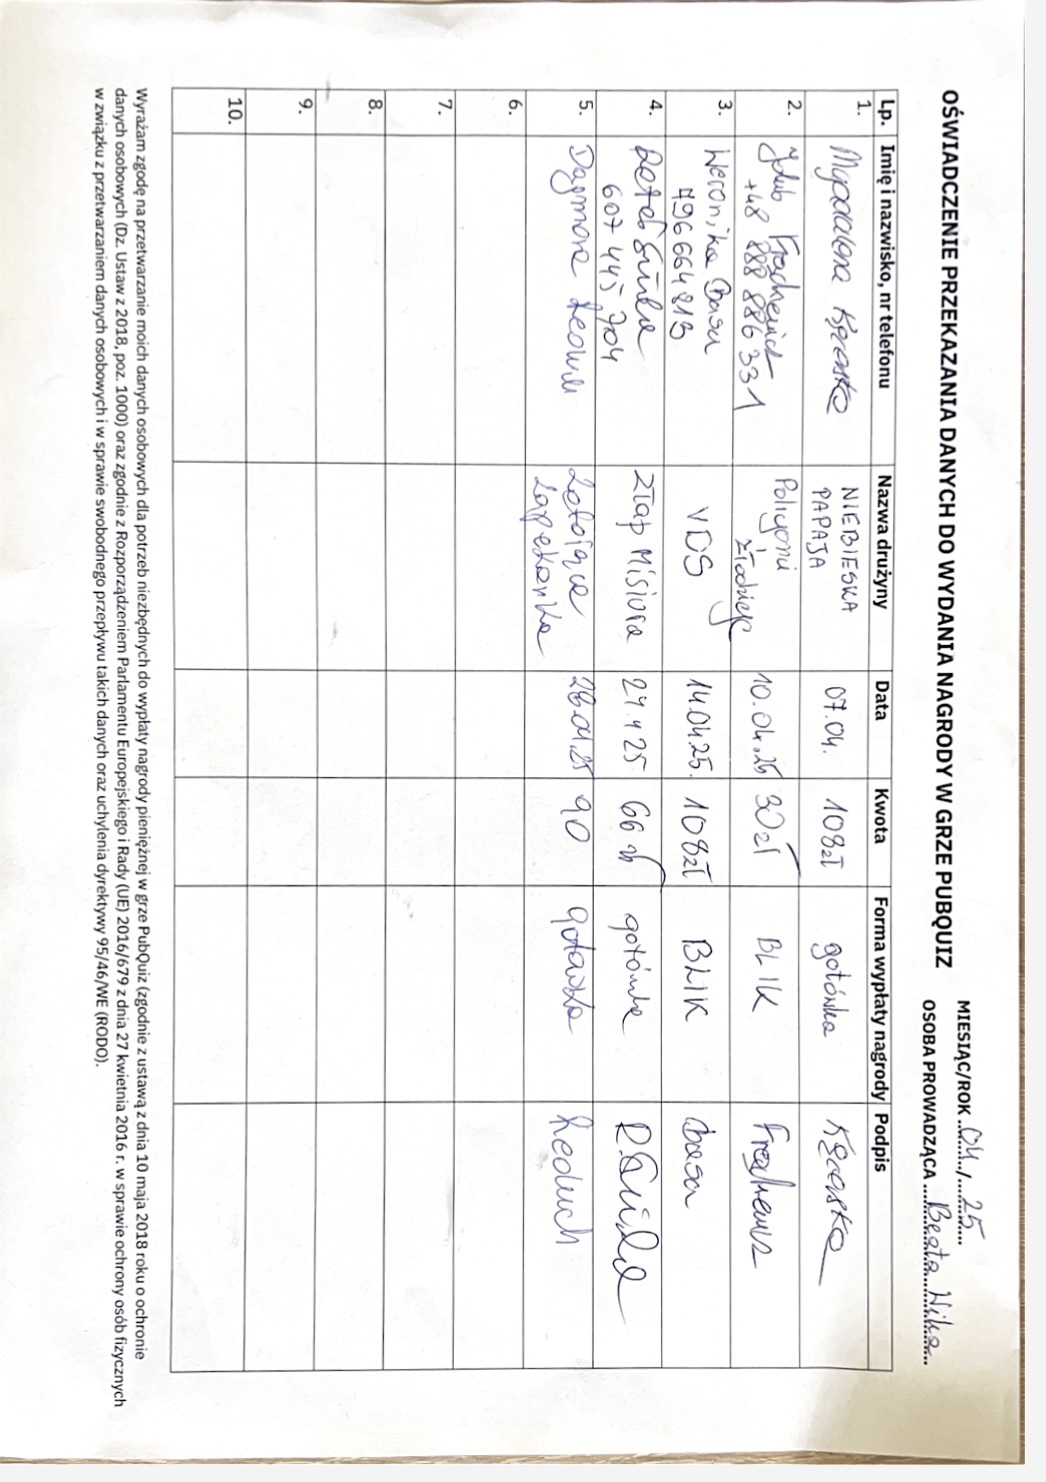 OŚWIADCZENIE PRZEKAZANIA DANYCH DO WYDANIA NAGRODY W GRZE PUBQUIZ
MIESIĄC/ROK 04 / 25
OSOBA PROWADZĄCA Beata
Lp. Imię i nazwisko, nr telefonu Nazwa drużyny Data Kwota Forma wypłaty nagrody Podpis
1. NIEBIESKA PAPAJA 07.04. 108zł gotówka
2. +48 888 886 331 Policyjni złodzieje 10.04.25 30zł BLIK
3. Weronika 796664213 VDS 14.04.25. 108zł BLIK
4. 607 445 704 Złap Misiura 66 zł gotówka
5. Dagmara zapiekanka 28.04.25 90 gotówka Leduch
6.
7.
8.
9.
10.
Wyrażam zgodę na przetwarzanie moich danych osobowych dla potrzeb niezbędnych do wypłaty nagrody pieniężnej w grze PubQuiz (zgodnie z ustawą z dnia 10 maja 2018 roku o ochronie
danych osobowych (Dz. Ustaw z 2018, poz. 1000) oraz zgodnie z Rozporządzeniem Parlamentu Europejskiego i Rady (UE) 2016/679 z dnia 27 kwietnia 2016 r. w sprawie ochrony osób fizycznych
w związku z przetwarzaniem danych osobowych i w sprawie swobodnego przepływu takich danych oraz uchylenia dyrektywy 95/46/WE (RODO).